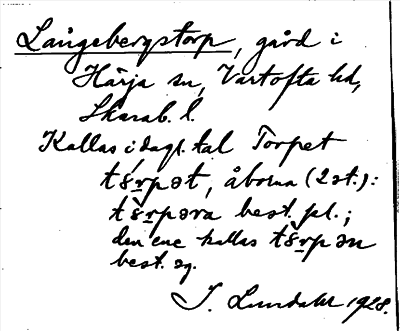 Långebergstorp, gård i
Härja sn, Vartofta hd,
Skarab. l.
Kallas i dagl. tal Torpet
tɞrpət, åborna (2 st.):
tɞrpəra best. pl.;
den ene kallas tɞrpən
best. sg.
J. Lundahl 1928.